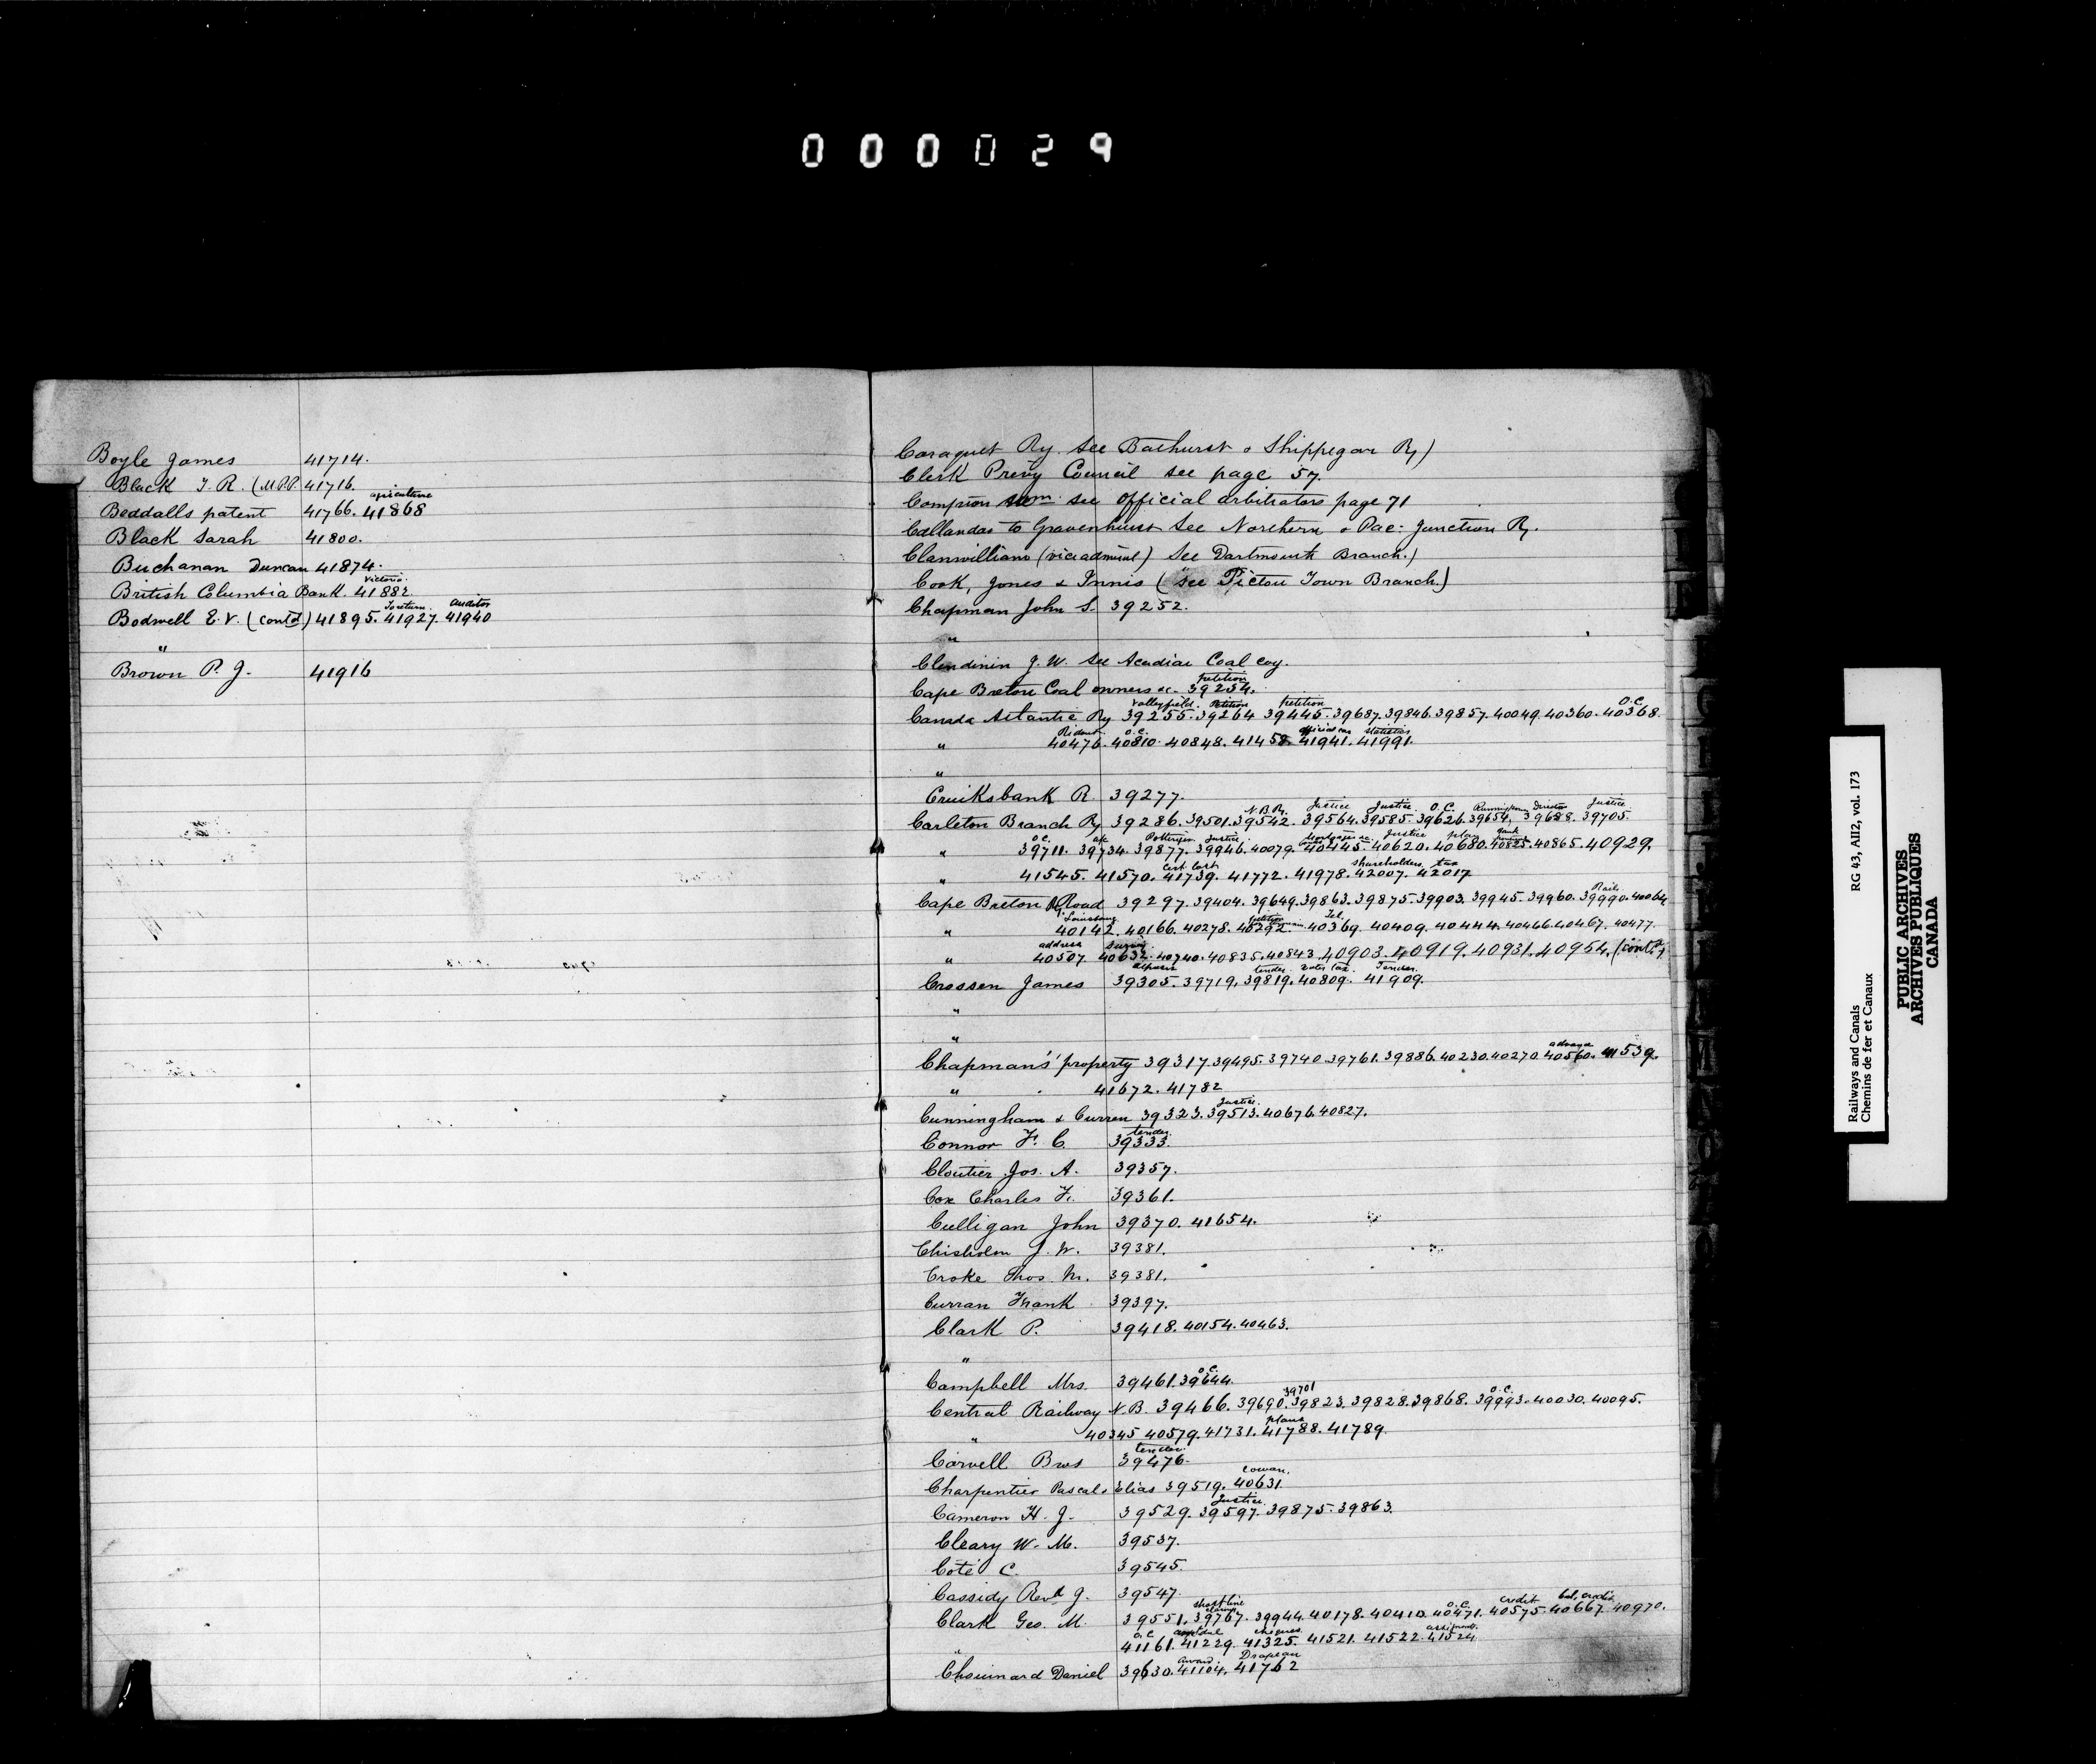 000029
Boyle James 41714.
Black T. R. (M.P.P. 41716.
agriculture
Beddalls patent 41766. 41868
Black Sarah 41800.
Buchanan Duncan 41874.
Victoria.
British Columbia Bank. 41882
To return. auditor
Bodwell E. V. (contd) 41895. 41927. 41940
"
Brown P. J. 41916
Caraquet Ry. See Bathurst & Shippegan Ry)
Clerk Privy Council see page 57.
Compton see official arbitrators page 71
Callandar to Gravenhurst See Northern & Pac: Junction Ry.
Clanwilliam (vice admiral) See Dartmouth Branch.)
Cook, Jones & Innis (see Pictou Town Branch.)
Chapman John S. 39252.
"
Clendinin J. W. See Acadian Coal coy.
petition
Cape Breton Coal owners &c. 39254.
Valleyfield. Petition petition O.C.
Canada Atlantic Ry 39255. 39264 39445. 39687. 39846. 39857. 40049. 40360. 40368.
Rideau O.C. official car statistics
" 40476. 40810. 40848. 41458. 41941. 41991.
"
Cruiksbank R. 39277.
N.B.Ry. Justice Justice. O.C. Director Justice
Carleton Branch Ry 39286. 39501. 39542. 39564. 39585. 39626. 39654. 39688. 39705.
O.C. Pottinger. Justice. Mortgages &c. Justice plan
" 39711. 39734. 39877. 39946. 40079. 40445. 40620. 40680. 40825. 40865. 40929.
Cert. Cost shareholders tax
" 41545. 41570. 41739. 41772. 41978. 42007. 42017
Rails
Cape Breton Ry Road 39297. 39404. 39649. 39863. 39875. 39903. 39945. 39960. 39990. 40064
Louisburg petition Tel.
" 40142. 40166. 40278. 40292. 40369. 40409. 40444. 40466. 40467. 40477.
address survey.
" 40507 40632. 40740. 40835. 40843. 40903. 40919. 40931. 40954. (contd)
tender. Tender.
Crossen James 39305. 39719. 39819. 40809. 41909.
"
"
Chapman's' property 39317. 39495. 39740. 39761. 39886. 40230. 40270. 40560. 41539.
" 41672. 41782
Justice.
Cunningham & Curren 39323. 39513. 40676. 40827.
tender.
Connor F. C. 39333.
Cloutier Jos. A. 39357.
Cox Charles F. 39361.
Culligan John 39370. 41654.
Chisholm J. W. 39381.
Croke Thos. M. 39381.
Curran Frank 39397.
Clark P. 39418. 40154. 40463.
"
O.C.
Campbell Mrs. 39461. 39644.
39701 O.C.
Central Railway N.B. 39466. 39690. 39823. 39828. 39868. 39993. 40030. 40095.
plans
" 40345 40579. 41731. 41788. 41789.
tender.
Carvell Bros 39476.
Cowan.
Charpentier Pascal & Elias 39519. 40631.
Justice.
Cameron H. J. 39529. 39597. 39875. 39863.
Cleary W. M. 39537.
Coté C. 39545.
Cassidy Revd J. 39547.
short line claims O.C. credit bal, credit
Clark Geo. M. 39551. 39767. 39944. 40178. 40410. 40471. 40575. 40667. 40970.
O.C. cheques.
" 41161. 41229. 41325. 41521. 41522. 41524
award. Drapeau
Chouinard Daniel 39630. 41104. 41762
Railways and Canals RG 43, AII2, vol. 173
Chemins de fer et Canaux
PUBLIC ARCHIVES
ARCHIVES PUBLIQUES
CANADA